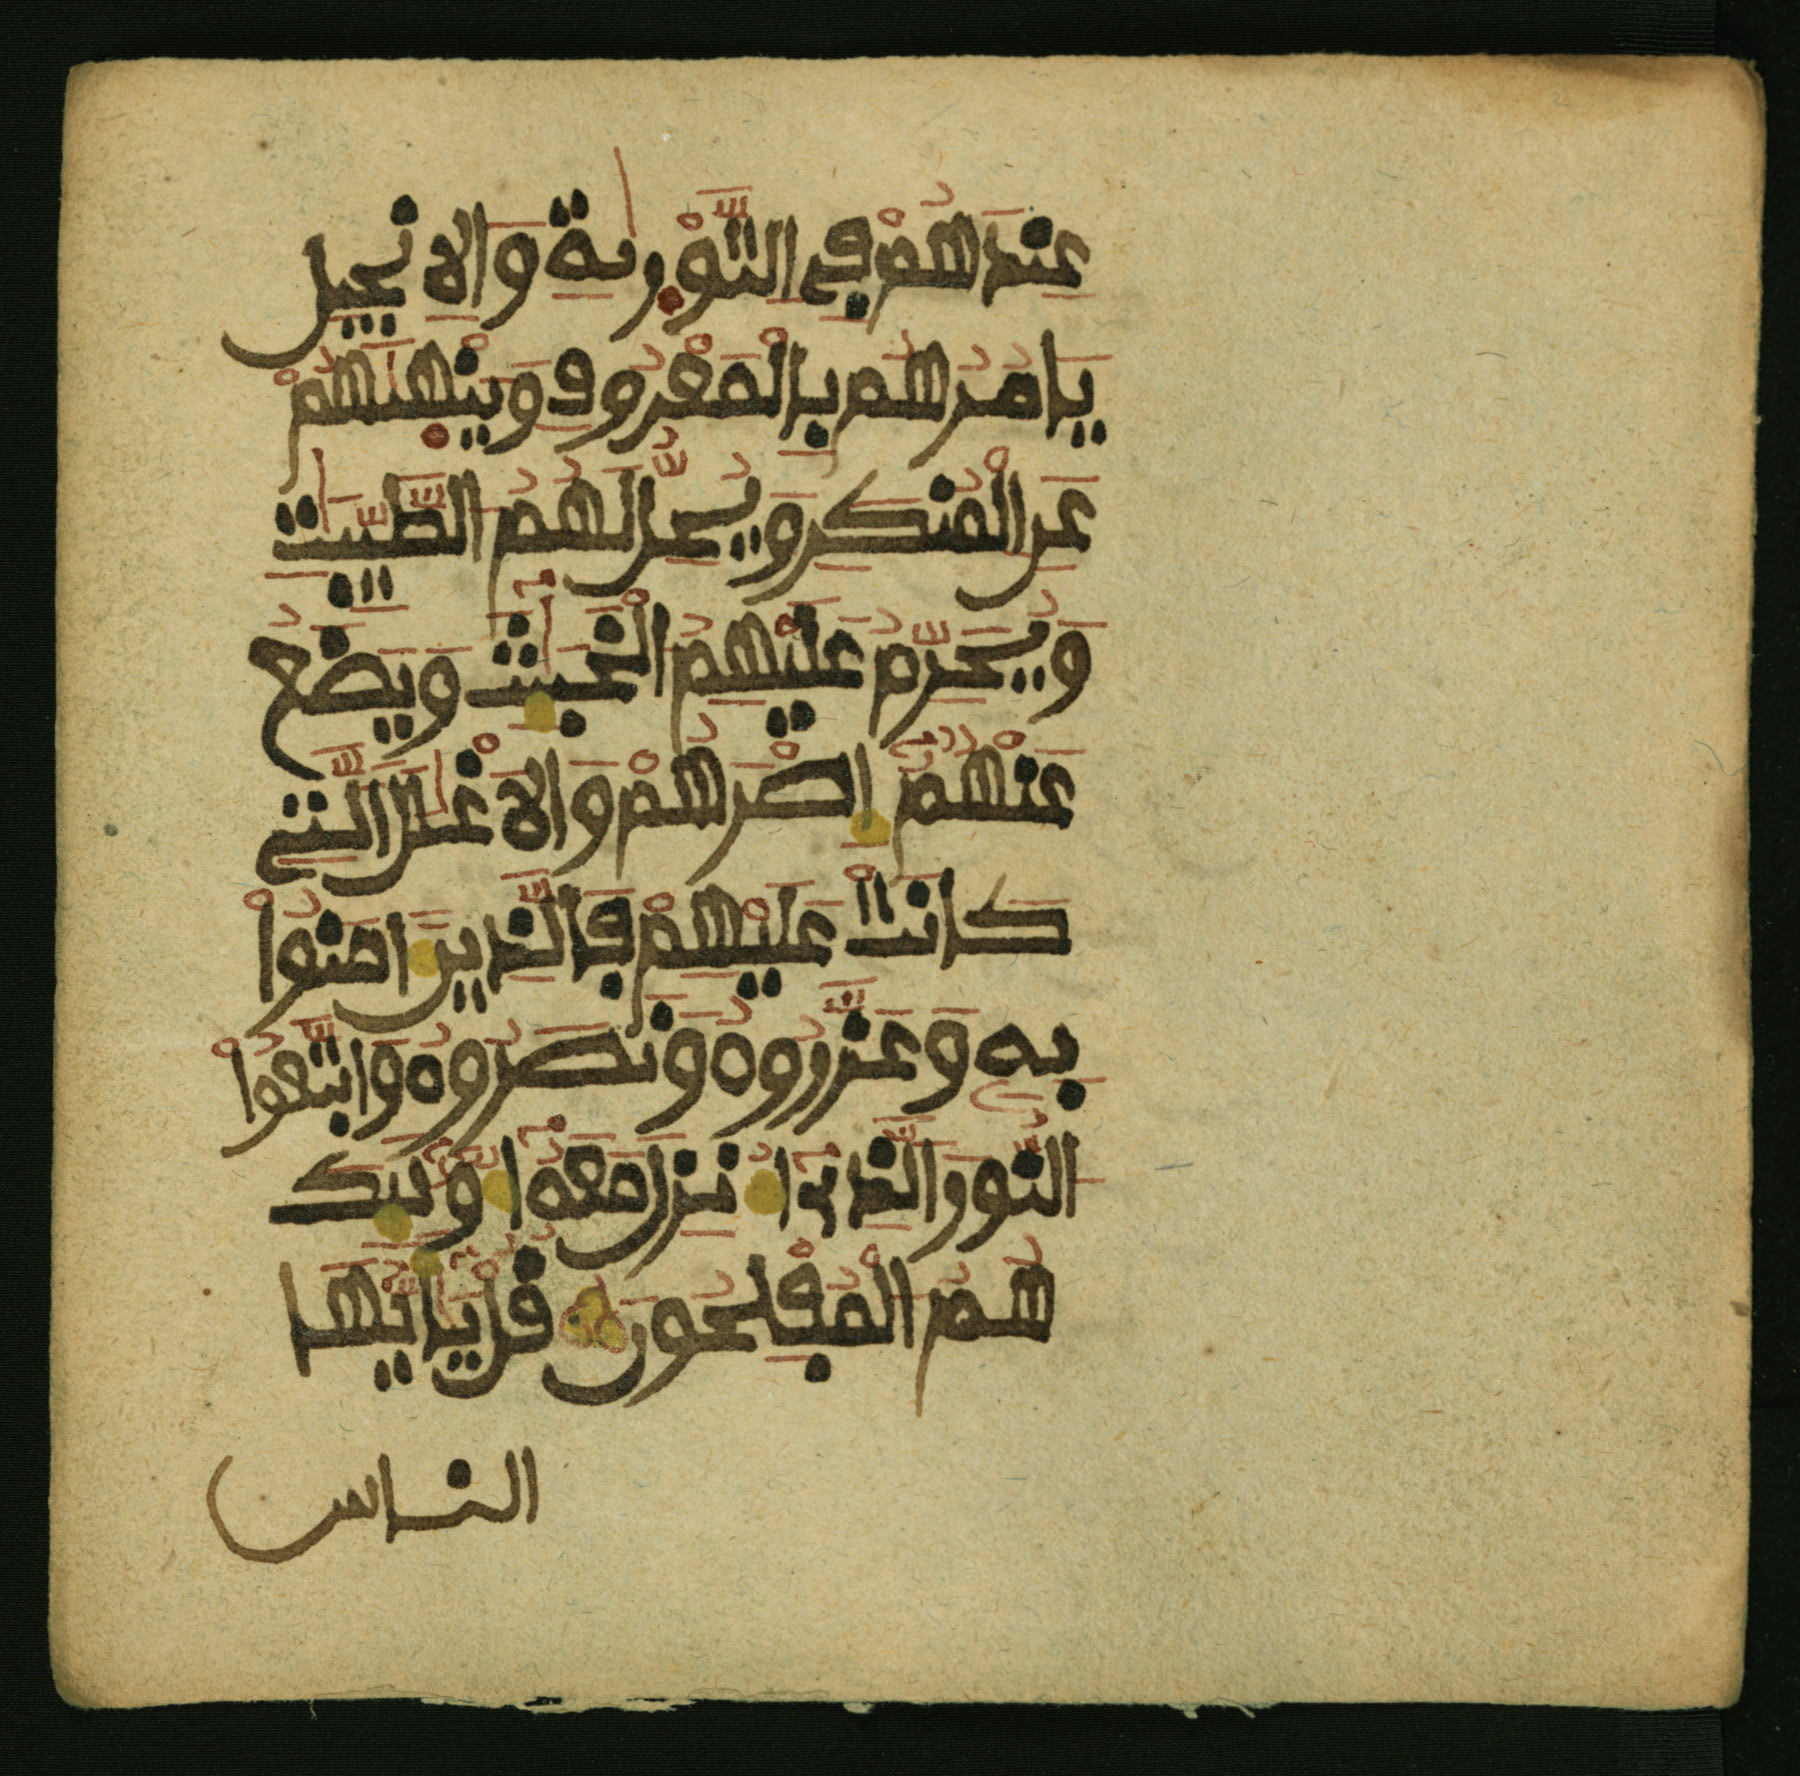 عِندَهُمْ فِي التَّوْرٜيٰةِ وَالِانجِيلِ
يَامُرُهُم بِالْمَعْرُوفِ وَيَنْهٜيٰهُمْ
عَنِ الْمُنكَرِ وَيُحِلُّ لَهُمُ الطَّيِّبَٰتِ
وَيُحَرِّمُ عَلَيْهِمُ الْخَبَٰٓئِثَ وَيَضَعُ
عَنْهُمُۥٓ إِصْرَهُمْ وَالَاغْلَٰلَ الَّتِي
كَانَتْ عَلَيْهِمْ فَالَّذِينَ ءَامَنُواْ
بِهِۦ وَعَزَّرُوهُ وَنَصَرُوهُ وَاتَّبَعُواْ
النُّورَ الَّذِيٓ أُنزِلَ مَعَهُۥٓ أُوْلَٰٓئِكَ
هُمُ الْمُفْلِحُونَ قُلْ يَٰٓأَيُّهَا
الناس